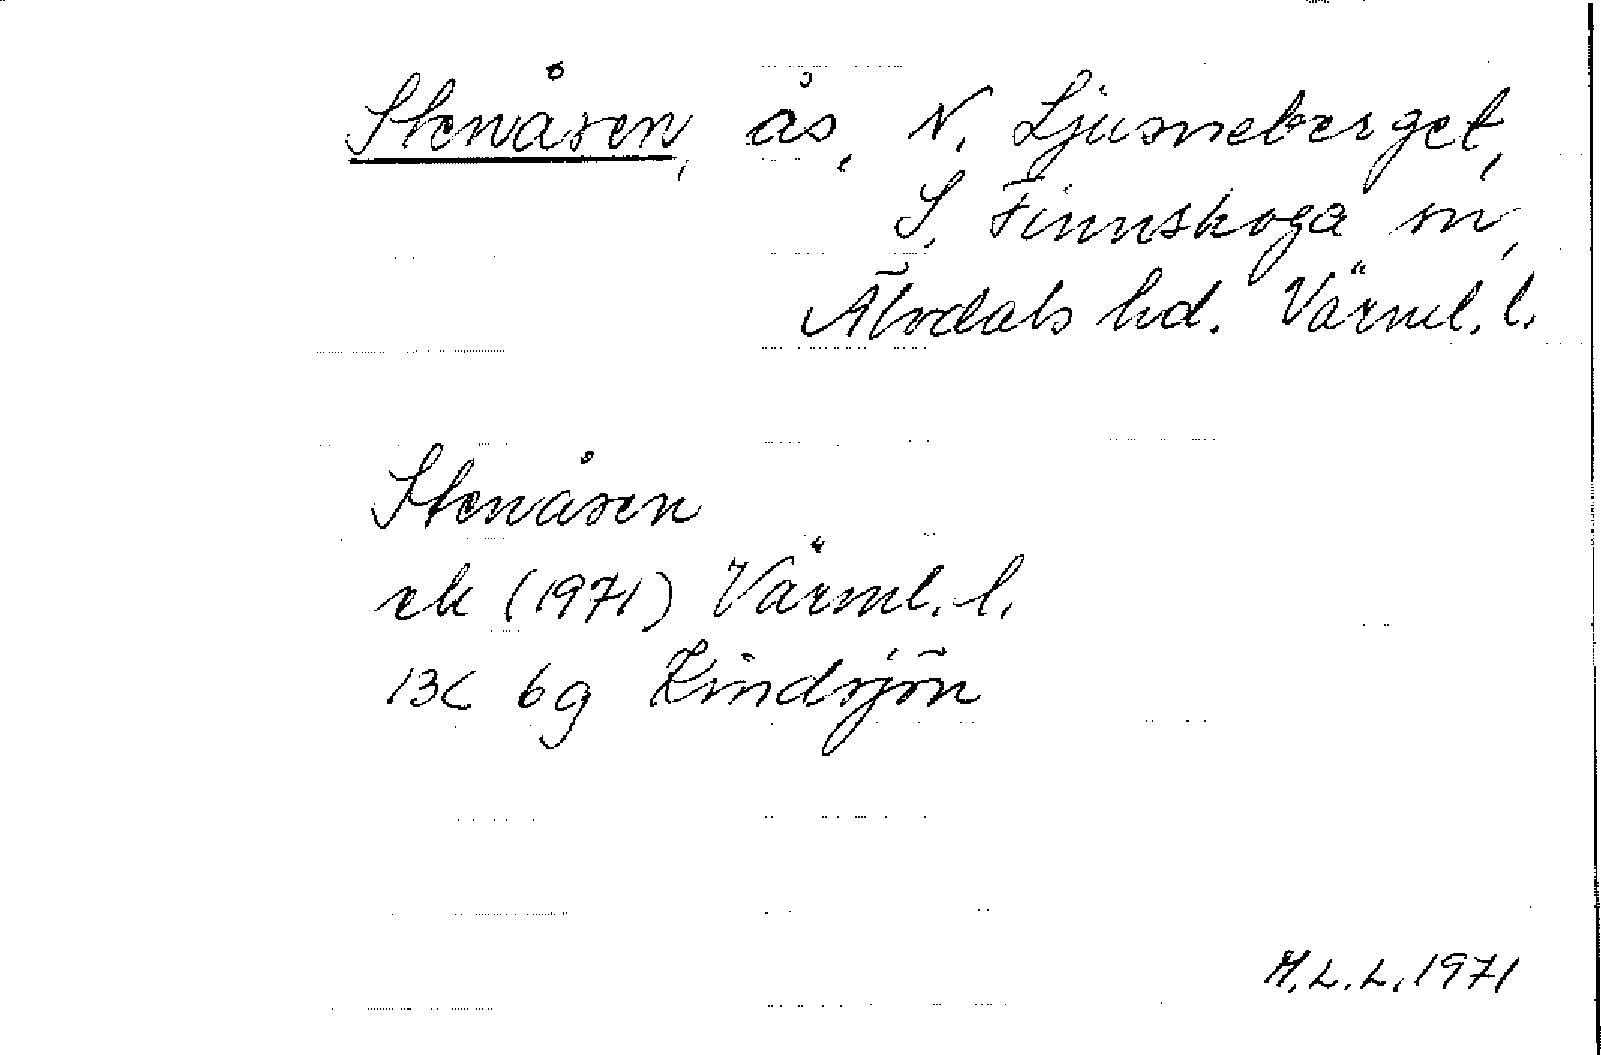 Stenåsen, ås, N. Ljusneberget,
S. Finnskoga sn,
Älvdals hd. Värml. l.
Stenåsen
ek (1971) Värml. l.
13C 6g Kindsjön
M.L.L. 1971